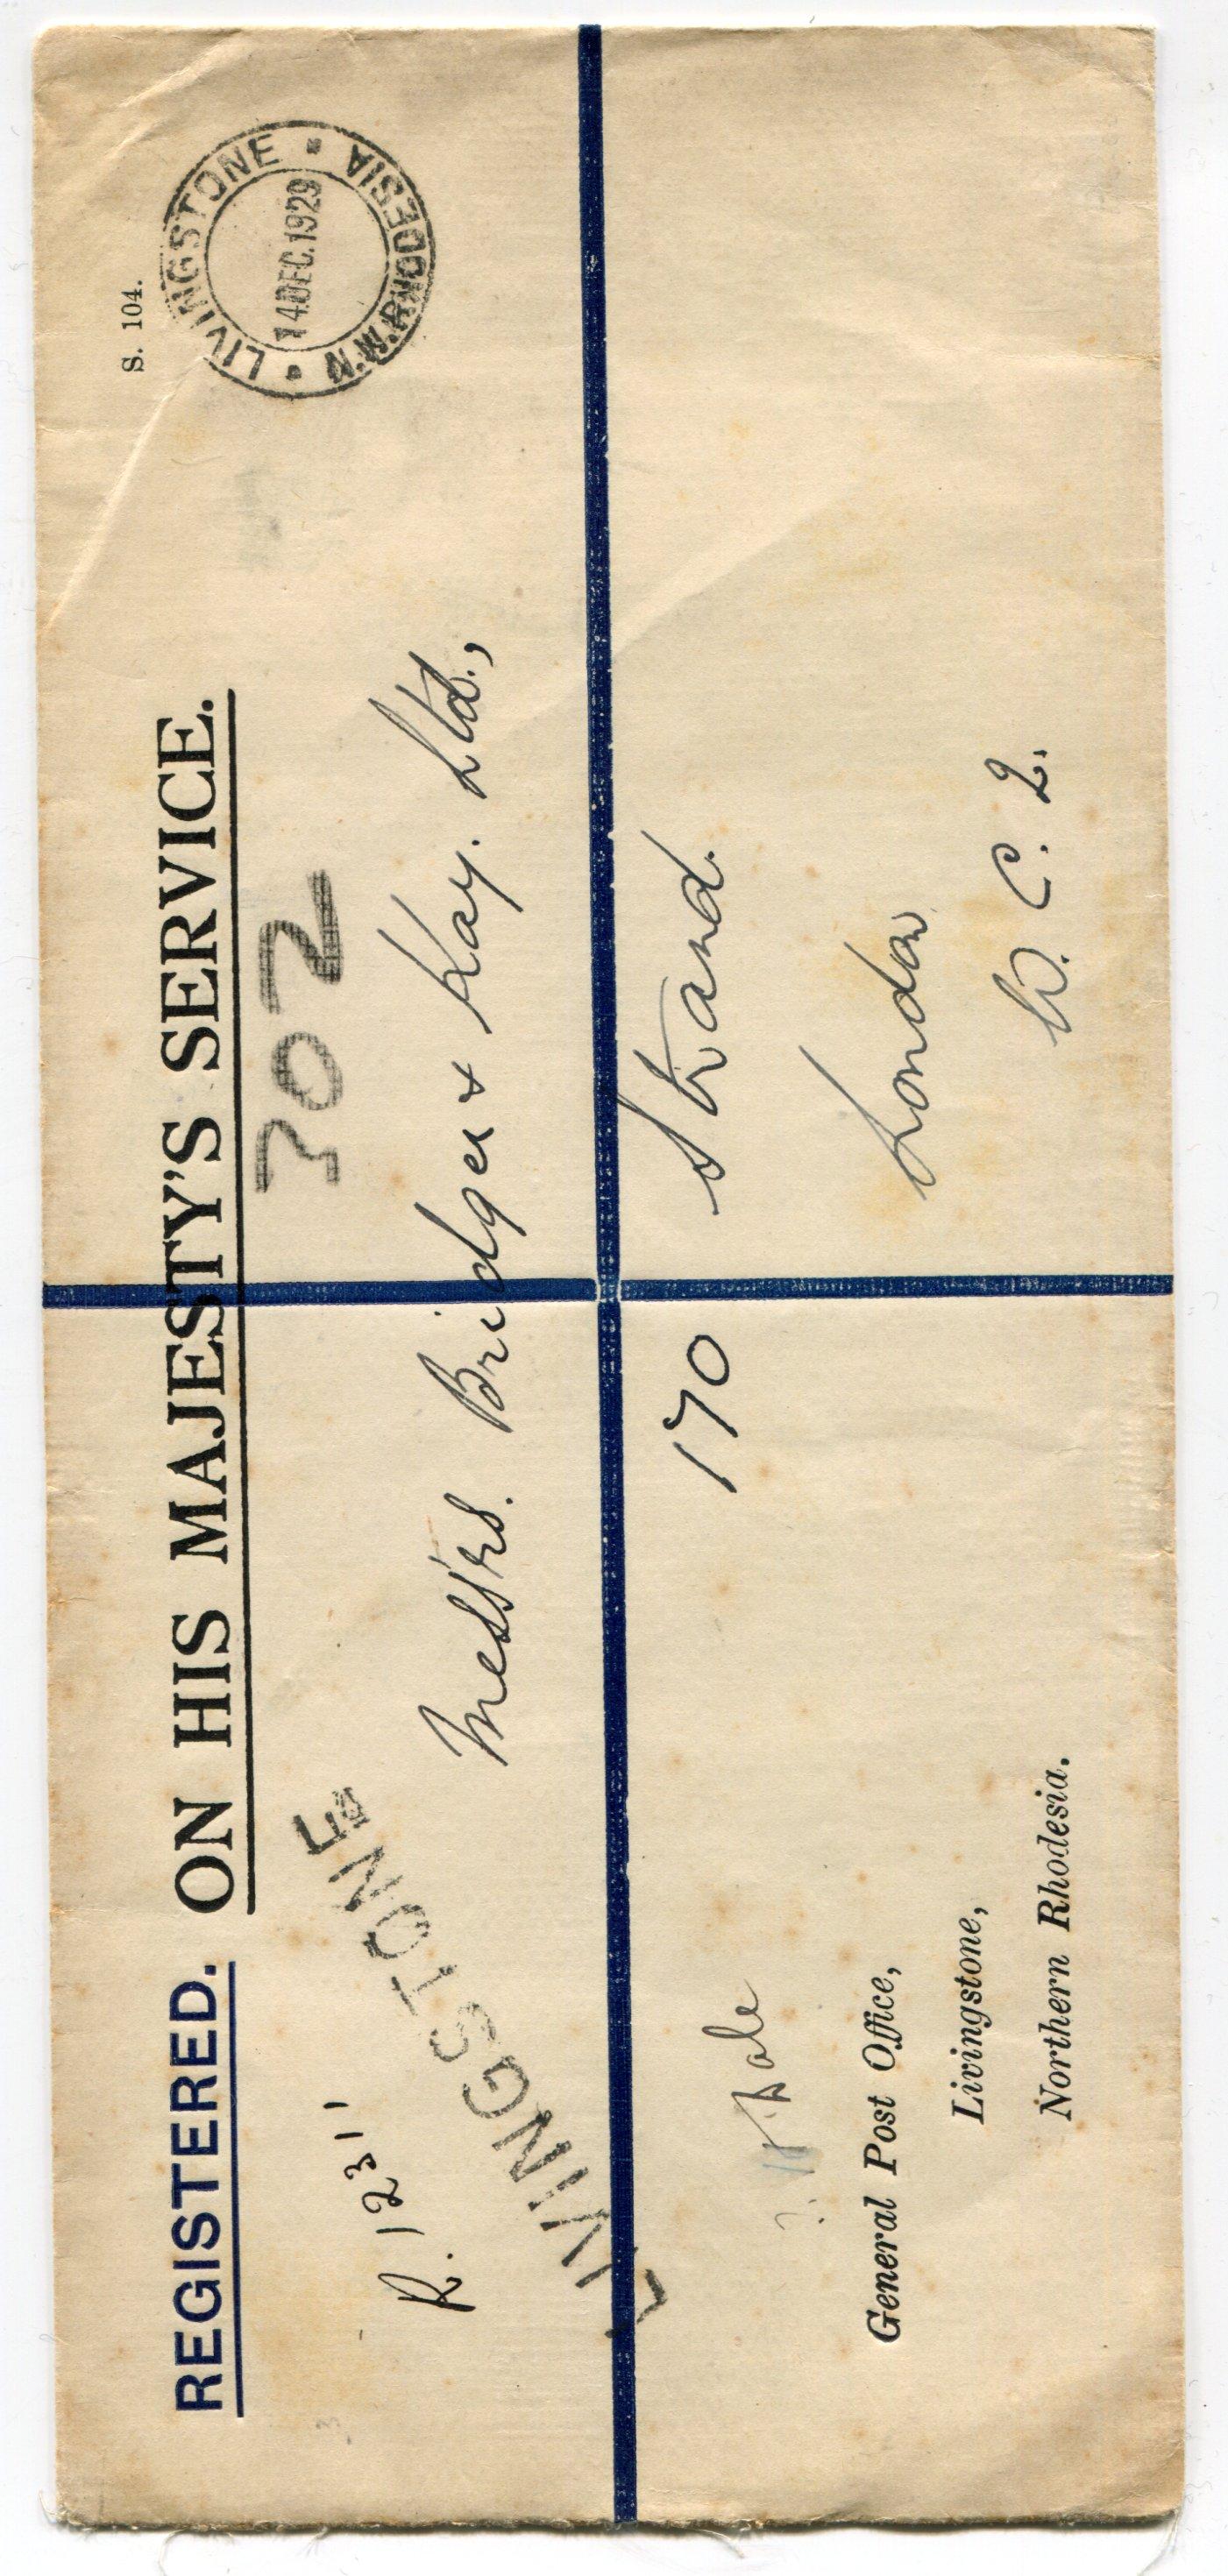 S. 104.
REGISTERED. ON HIS MAJESTY'S SERVICE.
LIVINGSTONE
14 DEC. 1929
N.W. RHODESIA
302
R. 1231
LIVINGSTONE
Messrs. Bridger & Kay. Ltd.,
170 Strand.
London
W. C. 2.
General Post Office,
Livingstone,
Northern Rhodesia.